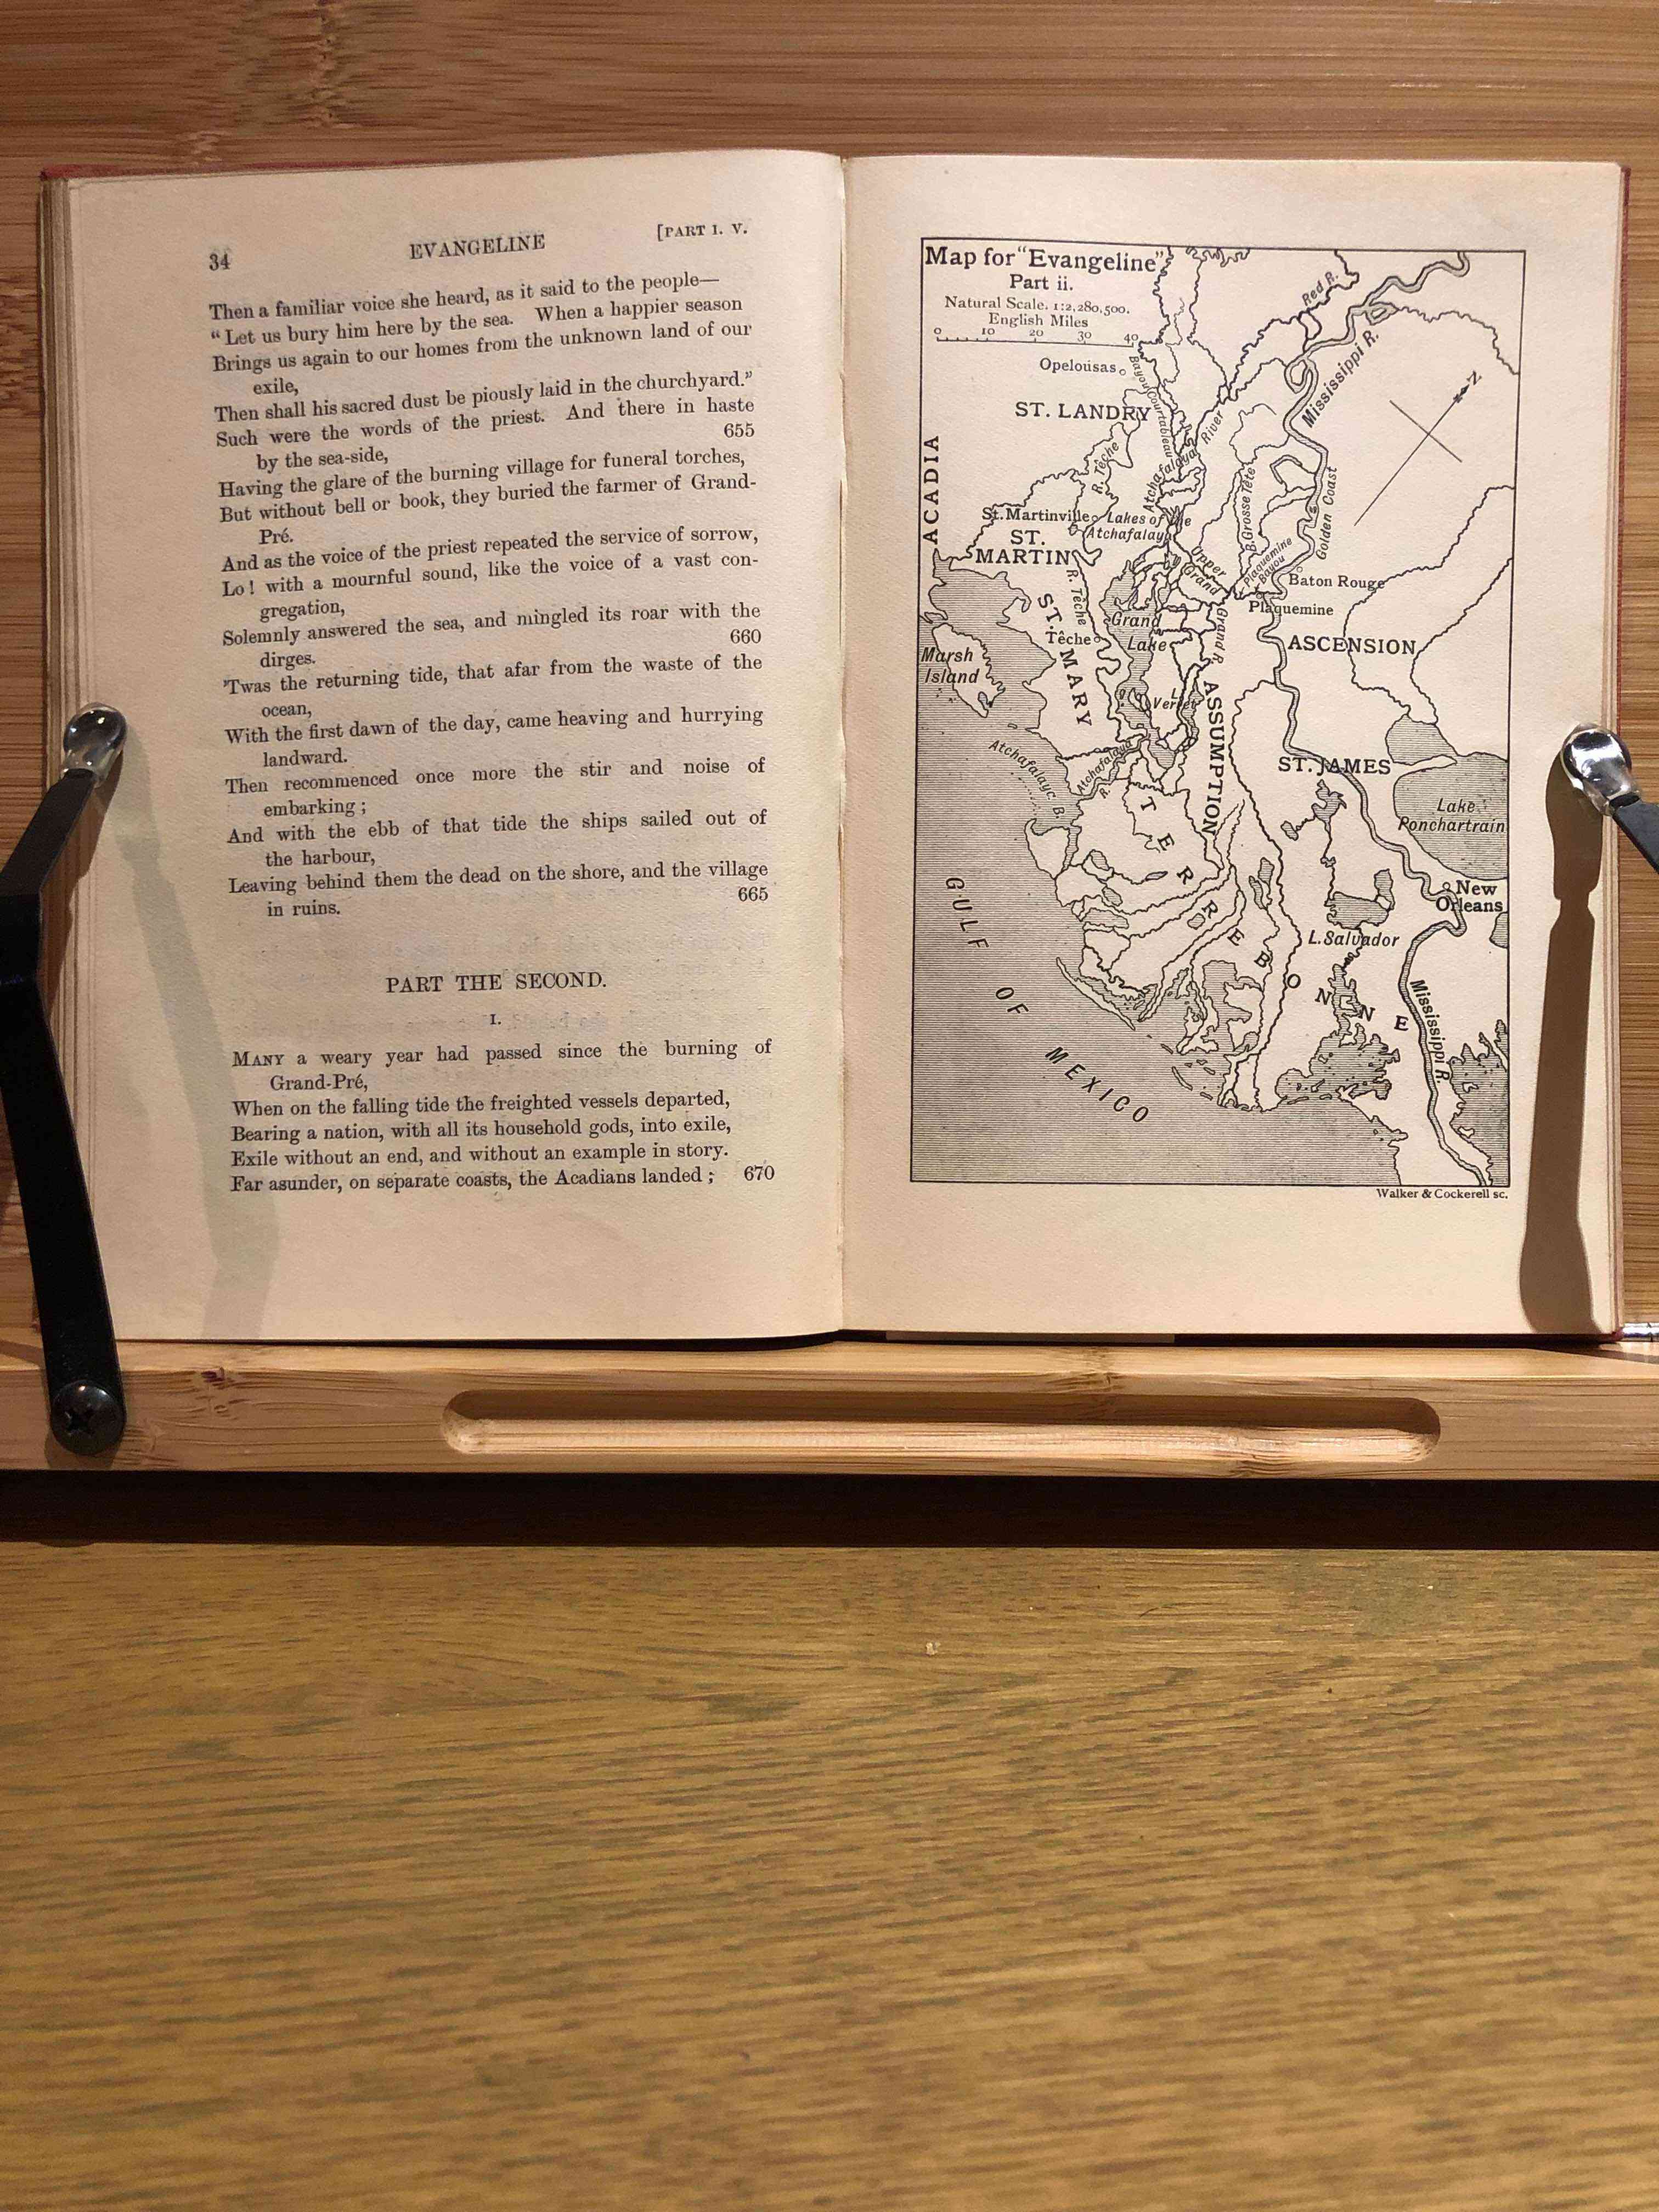 34 EVANGELINE [PART I. V.
Then a familiar voice she heard, as it said to the people—
“Let us bury him here by the sea. When a happier season
Brings us again to our homes from the unknown land of our
exile,
Then shall his sacred dust be piously laid in the churchyard.”
Such were the words of the priest. And there in haste
by the sea-side, 655
Having the glare of the burning village for funeral torches,
But without bell or book, they buried the farmer of Grand-
Pré.
And as the voice of the priest repeated the service of sorrow,
Lo! with a mournful sound, like the voice of a vast con-
gregation,
Solemnly answered the sea, and mingled its roar with the
dirges. 660
'Twas the returning tide, that afar from the waste of the
ocean,
With the first dawn of the day, came heaving and hurrying
landward.
Then recommenced once more the stir and noise of
embarking;
And with the ebb of that tide the ships sailed out of
the harbour,
Leaving behind them the dead on the shore, and the village
in ruins. 665
PART THE SECOND.
I.
MANY a weary year had passed since the burning of
Grand-Pré,
When on the falling tide the freighted vessels departed,
Bearing a nation, with all its household gods, into exile,
Exile without an end, and without an example in story.
Far asunder, on separate coasts, the Acadians landed; 670
Map for “Evangeline”
Part ii.
Natural Scale. 1:2,280,500.
English Miles
0 10 20 30 40
Red R.
Mississippi R.
N
Opelousas
Bayou Courtableau
ST. LANDRY
R. Teche
Atchafalaya
River
ACADIA
B. Grosse Tête
Golden Coast
St. Martinville
Lakes of the
Atchafalaya
ST.
MARTIN
Upper
Grand
Plaquemine
Bayou
Baton Rouge
Plaquemine
R. Teche
ST. MARY
Têche
Grand
Lake
Grand R.
ASCENSION
Marsh
Island
L.
Verret
ASSUMPTION
Atchafalaya
R.
ST. JAMES
Lake
Ponchartrain
TERREBONNE
New
Orleans
L. Salvador
GULF OF MEXICO
Mississippi R.
Walker & Cockerell sc.